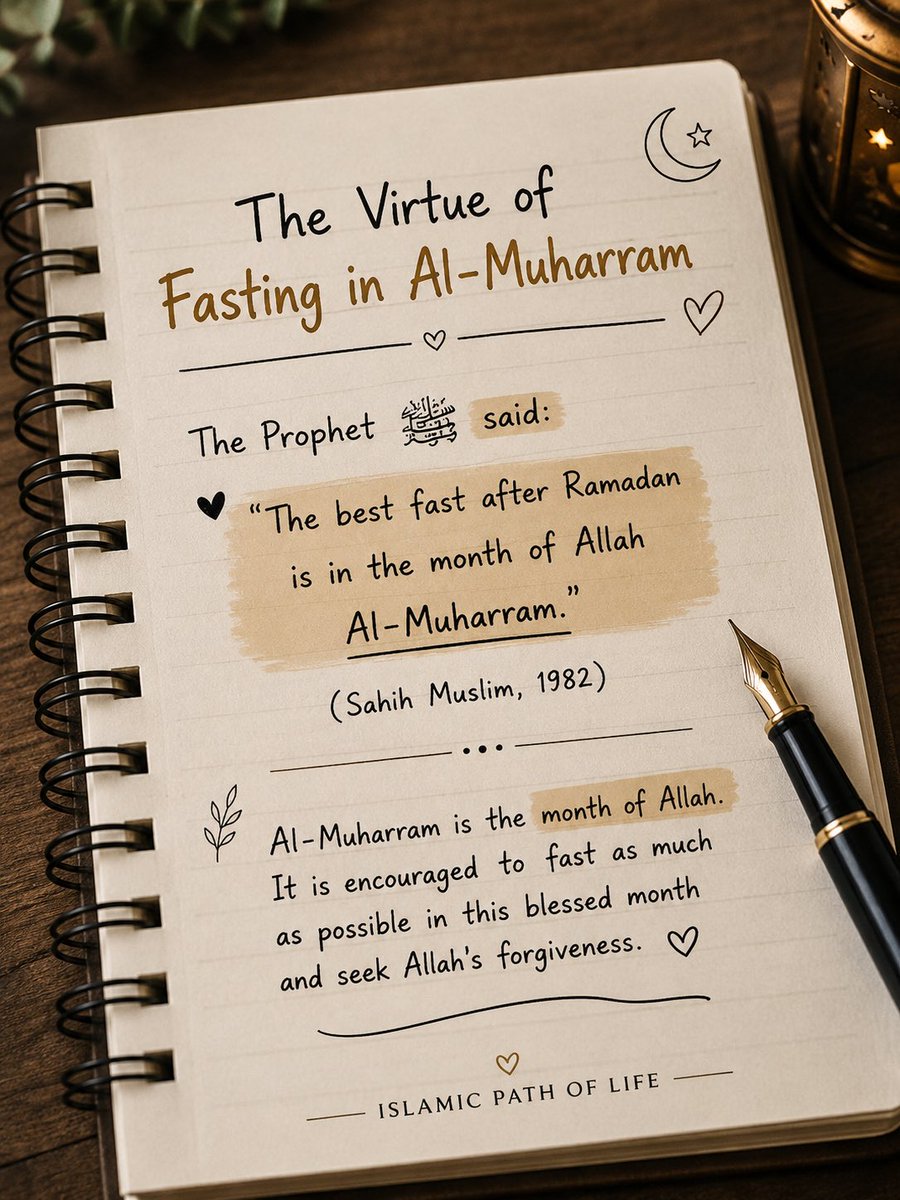 The Virtue of
Fasting in Al-Muharram
The Prophet ﷺ said:
“The best fast after Ramadan
is in the month of Allah
Al-Muharram.”
(Sahih Muslim, 1982)
Al-Muharram is the month of Allah.
It is encouraged to fast as much
as possible in this blessed month
and seek Allah's forgiveness.
ISLAMIC PATH OF LIFE